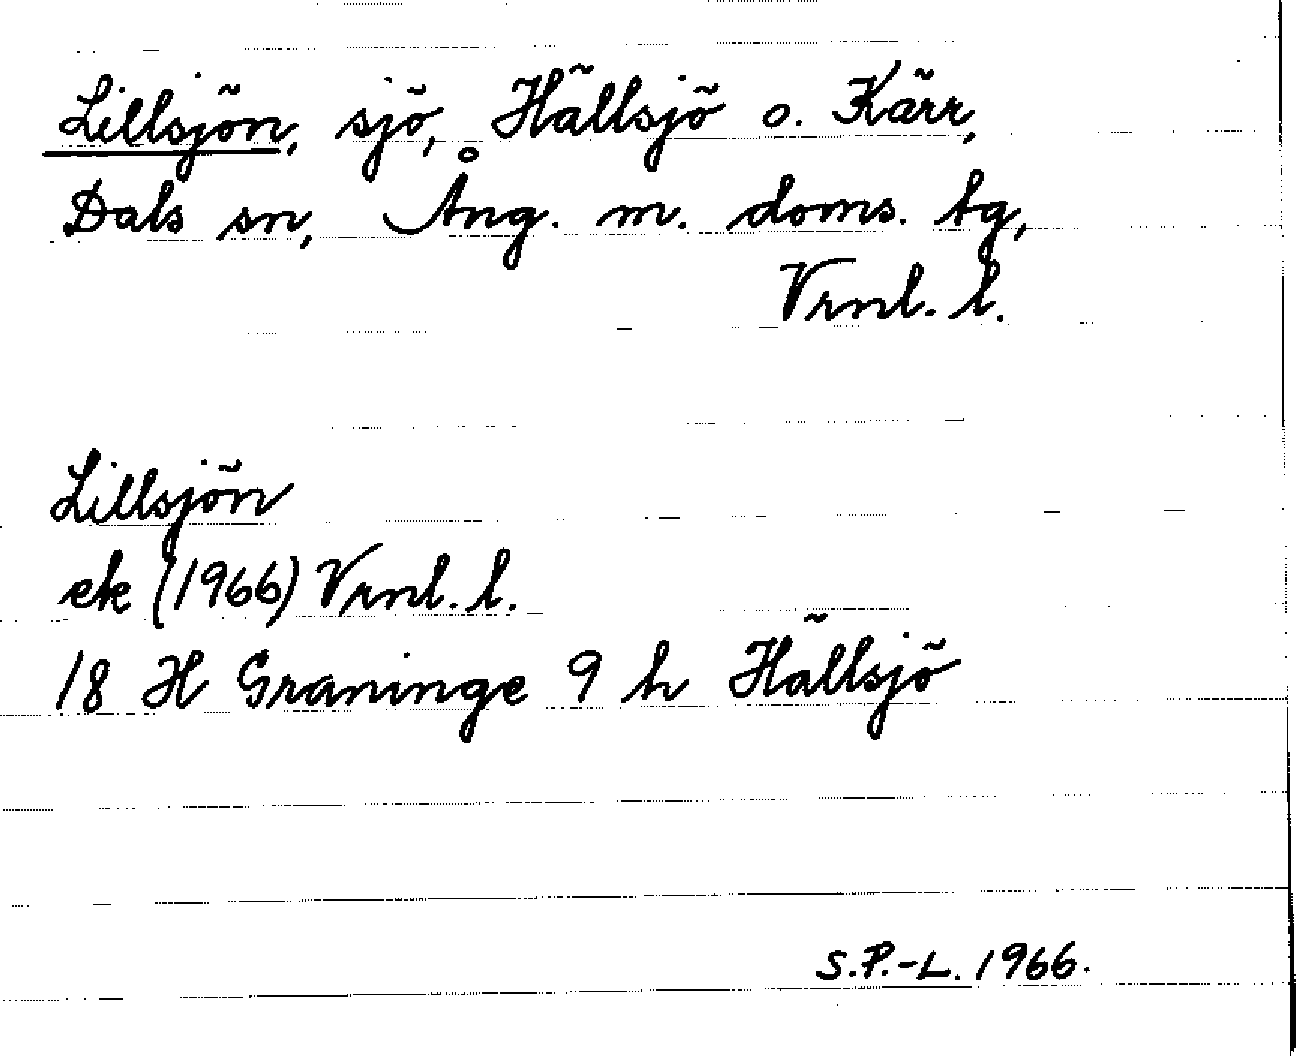 Lillsjön, sjö, Hällsjö o. Kärr,
Dals sn, Ång. m. doms. tg,
Vrnl. l.
Lillsjön
ek (1966) Vrnl. l.
18 H Graninge 9 h Hällsjö
S.P.-L. 1966.